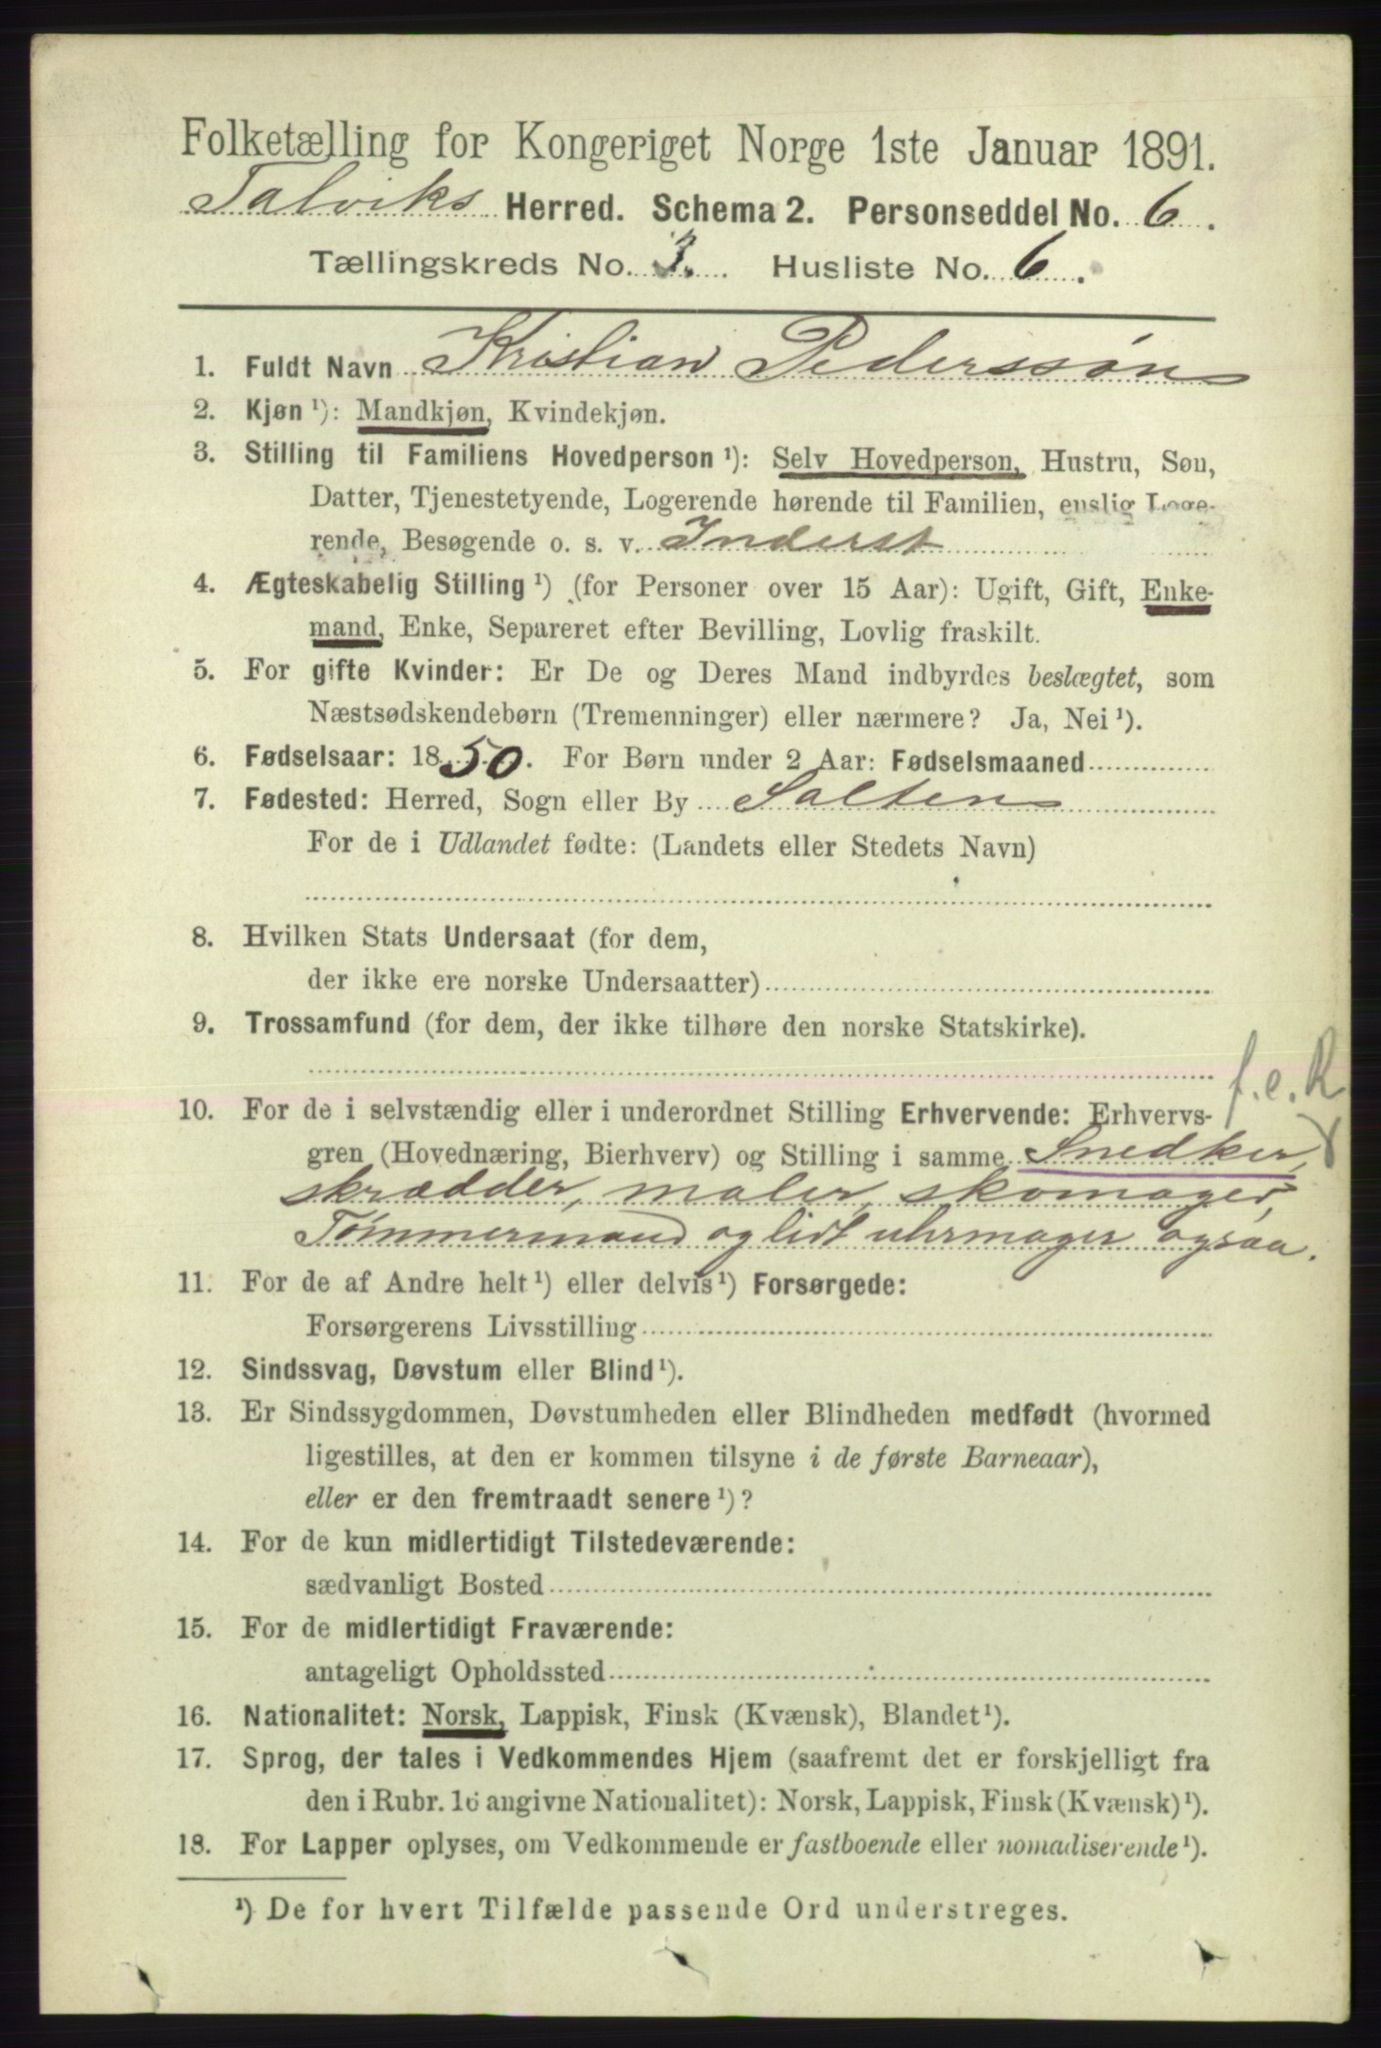 Folketælling for Kongeriget Norge 1ste Januar 1891.
Talviks Herred. Schema 2. Personseddel No. 6.
Tællingskreds No. 3. Husliste No. 6.
1. Fuldt Navn Kristian Pederssøn
2. Kjøn ¹): Mandkjøn, Kvindekjøn.
3. Stilling til Familiens Hovedperson ¹): Selv Hovedperson, Hustru, Søn,
Datter, Tjenestetyende, Logerende hørende til Familien, enslig Loge-
rende, Besøgende o. s. v. Inderst
4. Ægteskabelig Stilling ¹) (for Personer over 15 Aar): Ugift, Gift, Enke-
mand, Enke, Separeret efter Bevilling, Lovlig fraskilt.
5. For gifte Kvinder: Er De og Deres Mand indbyrdes beslægtet, som
Næstsødskendebørn (Tremenninger) eller nærmere? Ja, Nei ¹).
6. Fødselsaar: 1850. For Børn under 2 Aar: Fødselsmaaned
7. Fødested: Herred, Sogn eller By Salten
For de i Udlandet fødte: (Landets eller Stedets Navn)
8. Hvilken Stats Undersaat (for dem,
der ikke ere norske Undersaatter)
9. Trossamfund (for dem, der ikke tilhøre den norske Statskirke).
f.e.R
10. For de i selvstændig eller i underordnet Stilling Erhvervende: Erhvervs-
gren (Hovednæring, Bierhverv) og Stilling i samme Snedker,
skrædder, maler, skomager,
Tømmermand og lidt uhrmager ogsaa.
11. For de af Andre helt ¹) eller delvis ¹) Forsørgede:
Forsørgerens Livsstilling
12. Sindssvag, Døvstum eller Blind ¹).
13. Er Sindssygdommen, Døvstumheden eller Blindheden medfødt (hvormed
ligestilles, at den er kommen tilsyne i de første Barneaar),
eller er den fremtraadt senere ¹)?
14. For de kun midlertidigt Tilstedeværende:
sædvanligt Bosted
15. For de midlertidigt Fraværende:
antageligt Opholdssted
16. Nationalitet: Norsk, Lappisk, Finsk (Kvænsk), Blandet ¹).
17. Sprog, der tales i Vedkommendes Hjem (saafremt det er forskjelligt fra
den i Rubr. 16 angivne Nationalitet): Norsk, Lappisk, Finsk (Kvænsk) ¹).
18. For Lapper oplyses, om Vedkommende er fastboende eller nomadiserende ¹).
¹) De for hvert Tilfælde passende Ord understreges.